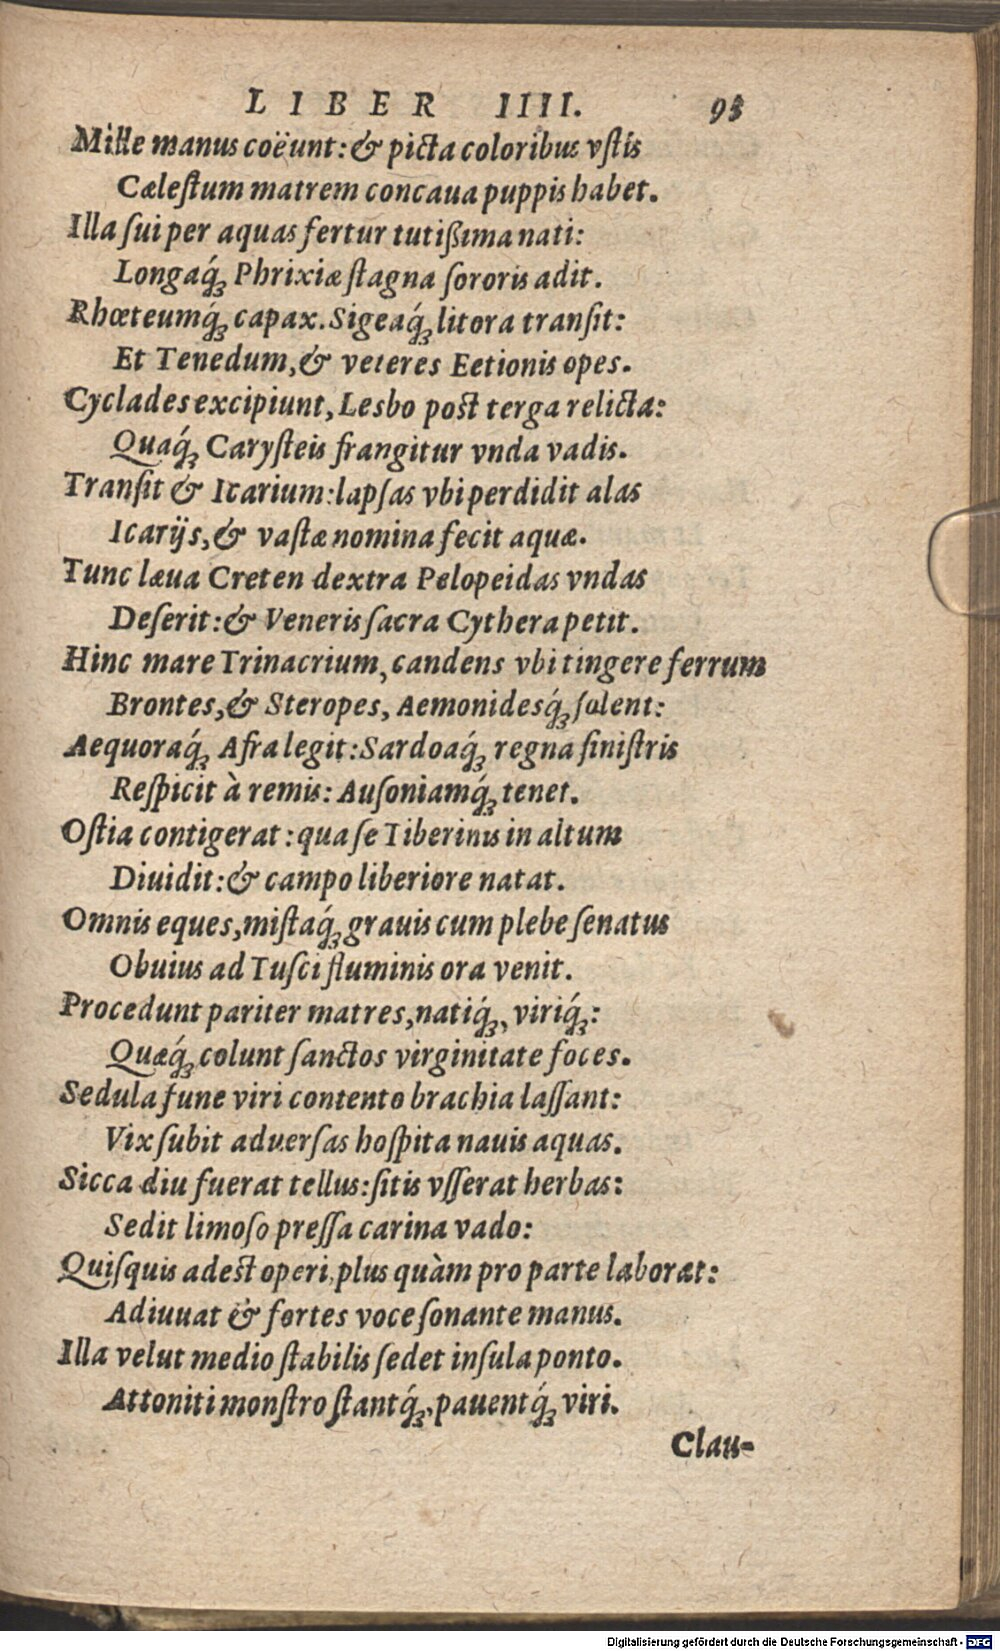 LIBER IIII. 93
Mille manus coëunt: & picta coloribus vſtis
Cæleſtum matrem concaua puppis habet.
Illa ſui per aquas fertur tutißima nati:
Longaq́ꝫ Phrixiæ ſtagna ſororis adit.
Rhœteumq́ꝫ capax. Sigeaq́ꝫ litora tranſit:
Et Tenedum, & veteres Eetionis opes.
Cyclades excipiunt, Lesbo poſt terga relicta:
Quaq́ꝫ Caryſteis frangitur vnda vadis.
Tranſit & Icarium: lapſas vbi perdidit alas
Icarijs, & vaſtæ nomina fecit aquæ.
Tunc læua Creten dextra Pelopeidas vndas
Deſerit: & Veneris ſacra Cythera petit.
Hinc mare Trinacrium, candens vbi tingere ferrum
Brontes, & Steropes, Aemonidesq́ꝫ ſolent:
Aequoraq́ꝫ Afra legit: Sardoaq́ꝫ regna ſiniſtris
Reſpicit à remis: Auſoniamq́ꝫ tenet.
Oſtia contigerat: qua ſe Tiberinus in altum
Diuidit: & campo liberiore natat.
Omnis eques, miſtaq́ꝫ grauis cum plebe ſenatus
Obuius ad Tuſci fluminis ora venit.
Procedunt pariter matres, natiq́ꝫ, viriq́ꝫ:
Quæq́ꝫ colunt ſanctos virginitate foces.
Sedula fune viri contento brachia laſſant:
Vix ſubit aduerſas hoſpita nauis aquas.
Sicca diu fuerat tellus: ſitis vſſerat herbas:
Sedit limoſo preſſa carina vado:
Quiſquis adeſt operi, plus quàm pro parte laborat:
Adiuuat & fortes voce ſonante manus.
Illa velut medio ſtabilis ſedet inſula ponto.
Attoniti monſtro ſtantq́ꝫ, pauentq́ꝫ viri.
Clau-
Digitalisierung gefördert durch die Deutsche Forschungsgemeinschaft - DFG